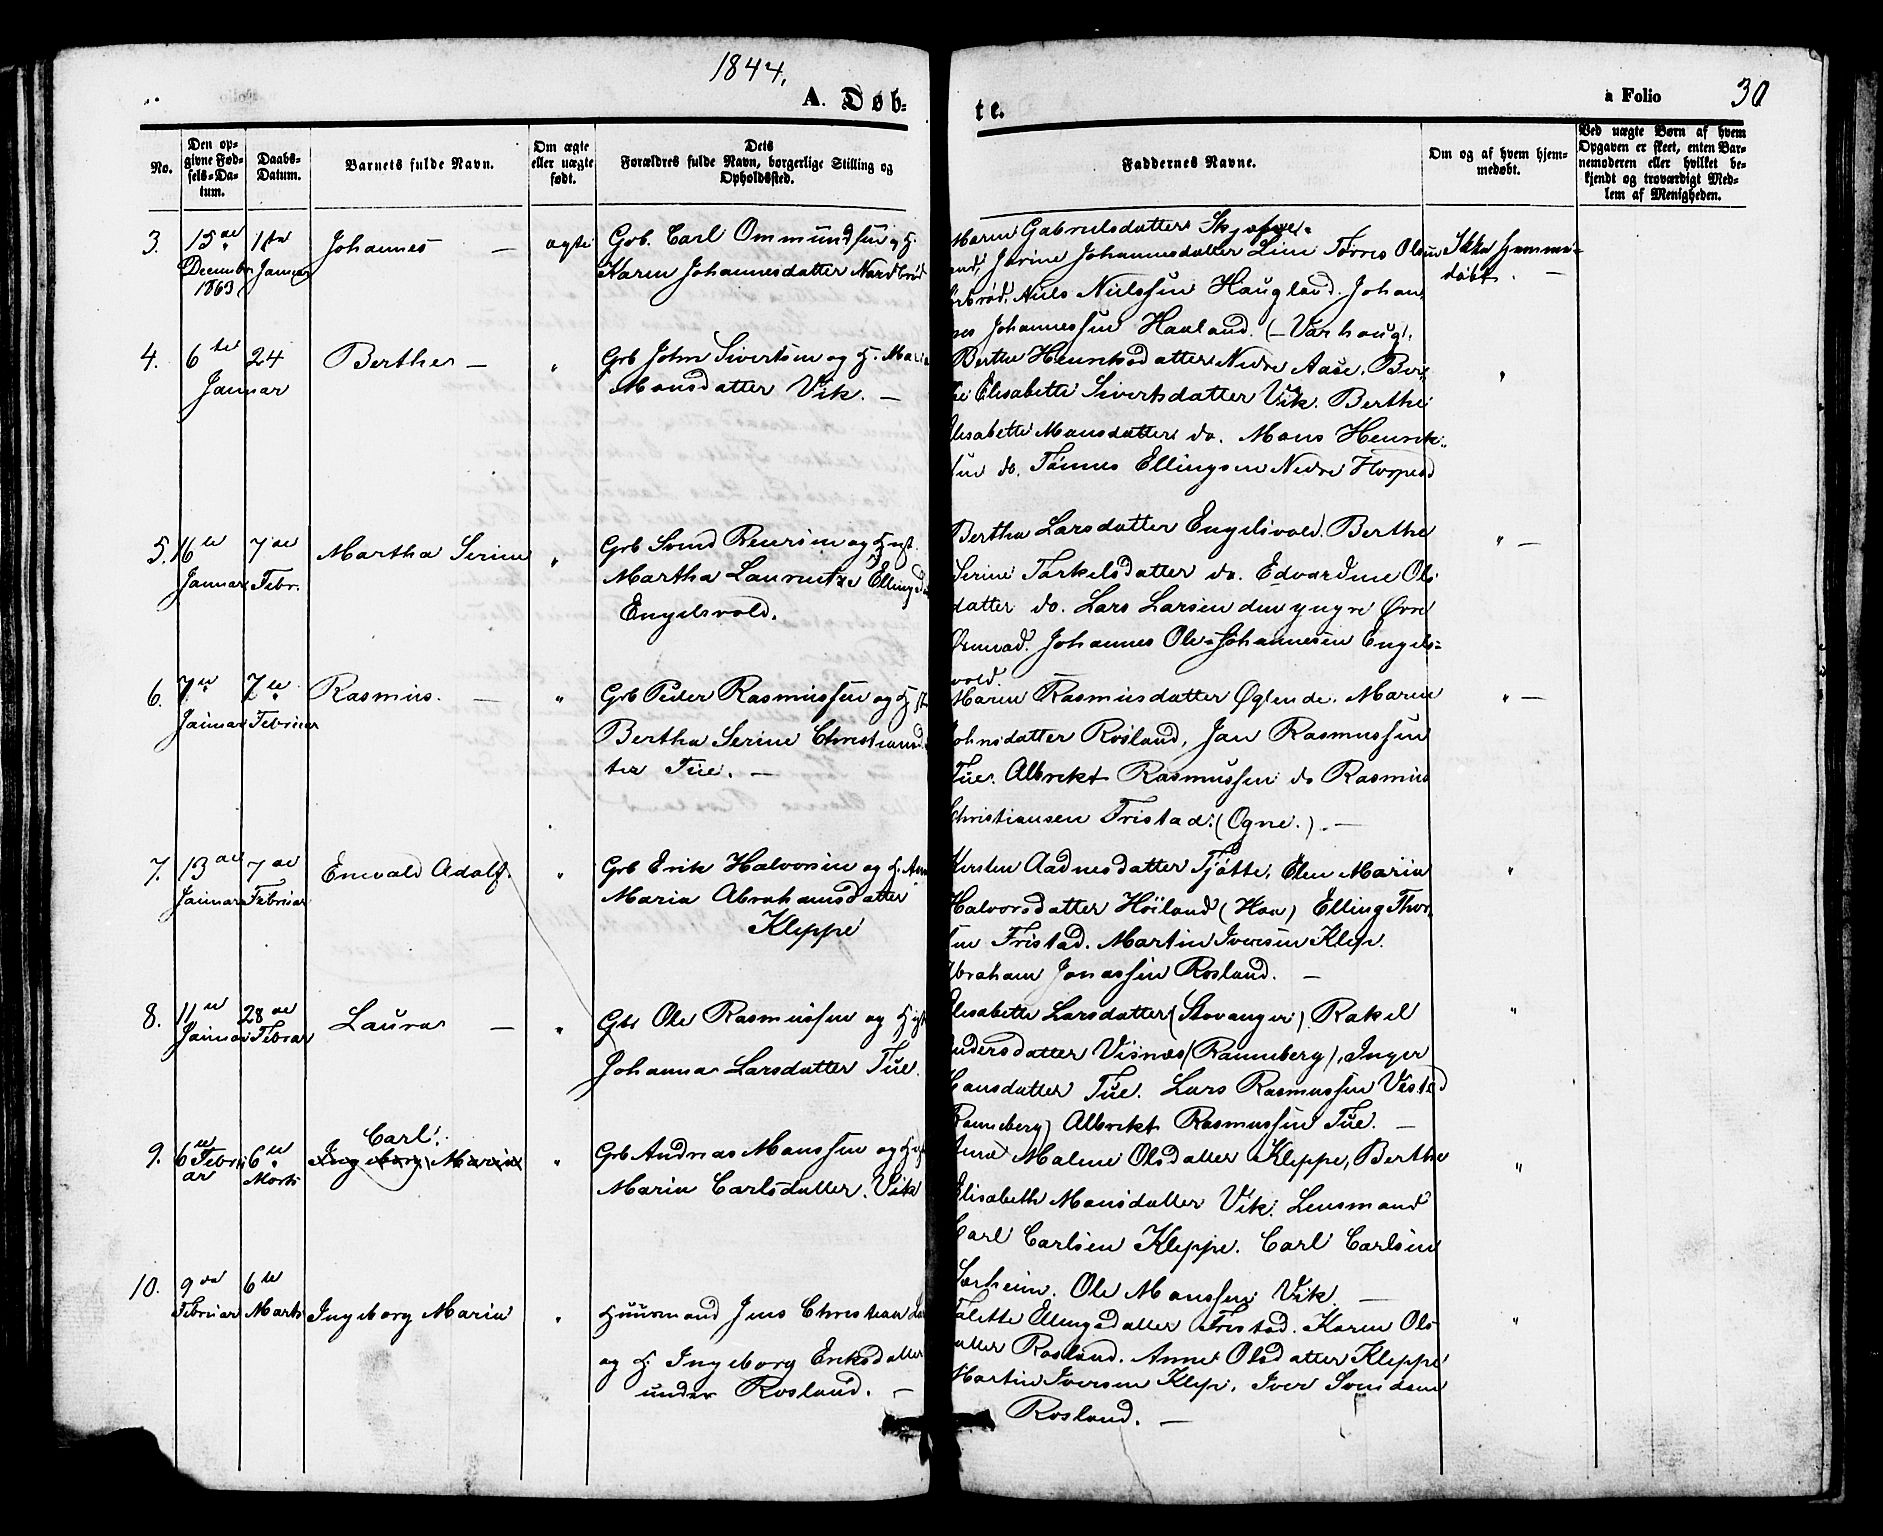 1844.
A. Døb-
te.
a Folio
30
No.
Den op-
givne Fød-
sels-Da-
tum.
Daabs-
Datum.
Barnets fulde Navn.
Om ægte
eller uægte
født.
Dets
Forældres fulde Navn, borgerlige Stilling og
Opholdssted.
Faddernes Navne.
Om og af hvem hjem-
medøbt.
Ved uægte Børn af hvem
Opgaven er skeet, enten Bar-
nemoderen eller hvilket be-
kjendt og troværdigt Med-
lem af Menigheden.
3.
15
Decembr
1863
1ste
Januar
Johannes —
ægte
Grb. Carl Ommundsen og H.
Karen Johannesdatter Nordbrød
Maren Gabrielsdatter
Jorine Johannesdatter Line Tørres Olsen
Niels Nielssen Haugland. Johan
nes Johannessen Haaland. (Varhoug).
Ikke hjemme-
døbt. —
4.
6te
Januar
24
Berthe —
"
Grb John Sivertsen og H. Maria
Monsdatter Vik. —
Berthe Henriksdatter Nedre Aase. Ber-
the Elisabette Sivertsdatter Vik. Berthe
Elisabette Monsdatter do. Mons Henrik-
sen do. Tønnes Ellingsen Nedre
"
5.
16de
Januar
7de
Febr.
Martha Serine
"
Grb Svend Reiersen og Hust.
Martha Lauritze Ellingsd
Engelsvold.
Bertha Larsdatter Engelsvold. Berthe
Serine Torkelsdatter do. Edvardine Ols-
datter do. Lars Larsen den yngre Øvre
Johannes Ole Johannesen Engels-
vold.
" —
6.
7de
Januar
7de
Februar
Rasmus. —
"
Grb Peder Rasmussen og Hst
Bertha Serine Christiansd
ter Tue. —
Maren Rasmusdatter Øglende. Maren
Johnsdatter Rosland, Jan Rasmussen
Tue. Albrekt Rasmussen do Rasmus
Christiansen Fristad. (Ogne.). —
" —
7.
13de
Januar
7de
Februar
Enevald Adolf.
"
Grb Erik Halvorsen og H. Ann
Maria Abrahamsdatter
Kleppe
Kirsten Aadnesdatter Tjøtte, Elen Maria
Halvorsdatter Høiland (Haa) Elling Thor-
sen Fristad. Martin Iversen Klep.
Abraham Jonassen Rosland. —
"
8.
11te
Januar
28de
Febrar
Laura —
"
Grb Ole Rasmussen og Hust
Johanna Larsdatter Tue.
Elisabette Larsdatter (Stavanger). Rakel
Andersdatter Visnæs (Ranneberg), Inger
Hansdatter Tue. Lars Rasmussen Vistad
Ranneberg) Albrekt Rasmussen Tue. —
"
9.
6te Febru
ar
6te
Marts
Carl.
Ingeborg Maria
"
Grb Andreas Monssen og Hust
Maria Carlsdatter. Vik
Anne Malene Olsdatter Kleppe, Berthe
Elisabeth Monsdatter Vik. Lensmand
Carl Carlsen Kleppe. Carl Carlsen
Sørheim. Ole Monssen Vik —
"
10.
9de
Februar
6te
Marts
Ingeborg Maria
"
Huusmand Jens Christian
og H. Ingeborg Eriksdatter
under Rosland. —
Talette Ellingsdatter Fristad. Karen Ols-
datter Rosland. Anne Olsdatter Kleppe
Martin Iversen Klep. Iver Svendsen
Rosland. —
"